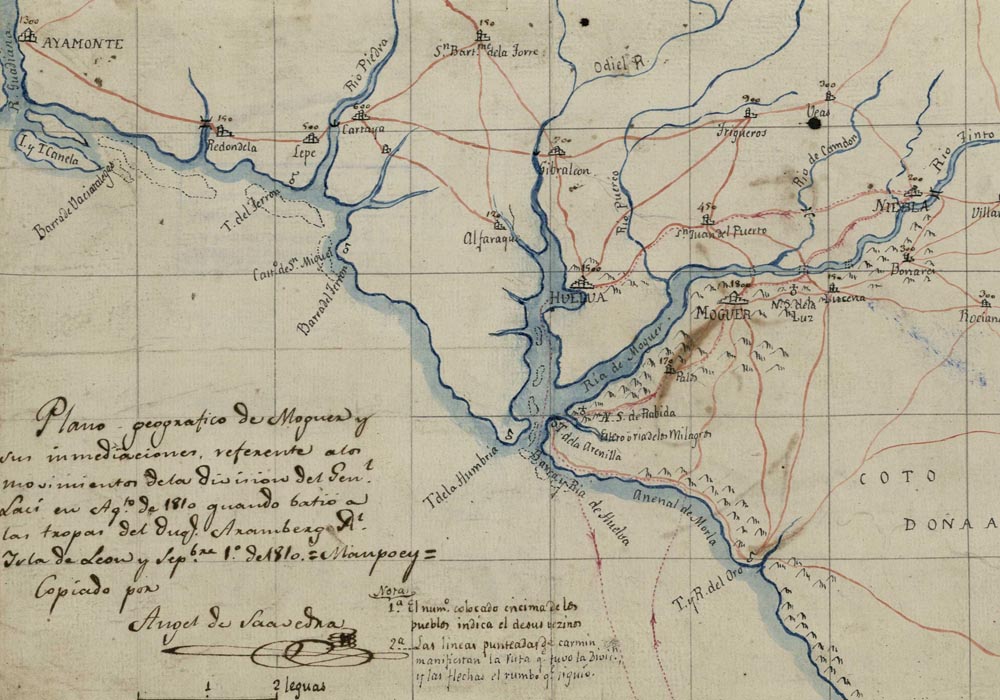 1300
AYAMONTE
R. Guadiana
I. y T. Canela
Barra de Vaciatalegas
150
Redondela
500
Lepe
600
Cartaya
Rio Piedra
150
Sn Bartme de la Torre
Odiel R.
T. del Terron
Barra del Terron
200
Gibraleon
Alfaraque
Rio Puerco
900
Trigueros
300
Veas
Rio de Candon
Rio Tinto
200
NIEBLA
Villa
450
Sn Juan del Puerto
1500
HUELUA
1800
MOGUER
N. S. de la
Luz
150
Lucena
300
Bonares
300
Rociana
Ria de Moguer
170
Palos
N. S. de Rabida
Estero ò ria de los Milagros
T. de la Arenilla
T. de la Humbria
Barra y Ria de Huelva
Arenal de Morla
T. y R. del Oro
COTO
DOÑA A
Plano geografico de Moguer y
sus inmediaciones, referente a los
movimientos de la division del Genl.
Laci en Agto de 1810 quando batiò a
las tropas del duq. Aramberg. Rl.
Isla de Leon y Sepbre 1º de 1810. = Maupoey =
Copiado por
Angel de Saavedra
Nota
1ª El numº colocado encima de los
pueblos indica el de sus vezinos
2ª Las lineas punteadas de carmin
manifiestan la Ruta q. tuvo la Divn.
y las flechas el rumbo q. siguió.
1 2 leguas